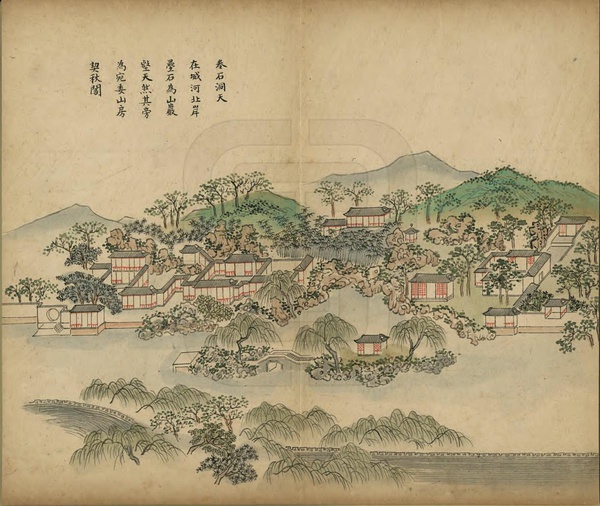 卷石洞天
在城河北岸
壘石為山巖
壑天然其旁
為宛委山房
契秋閣